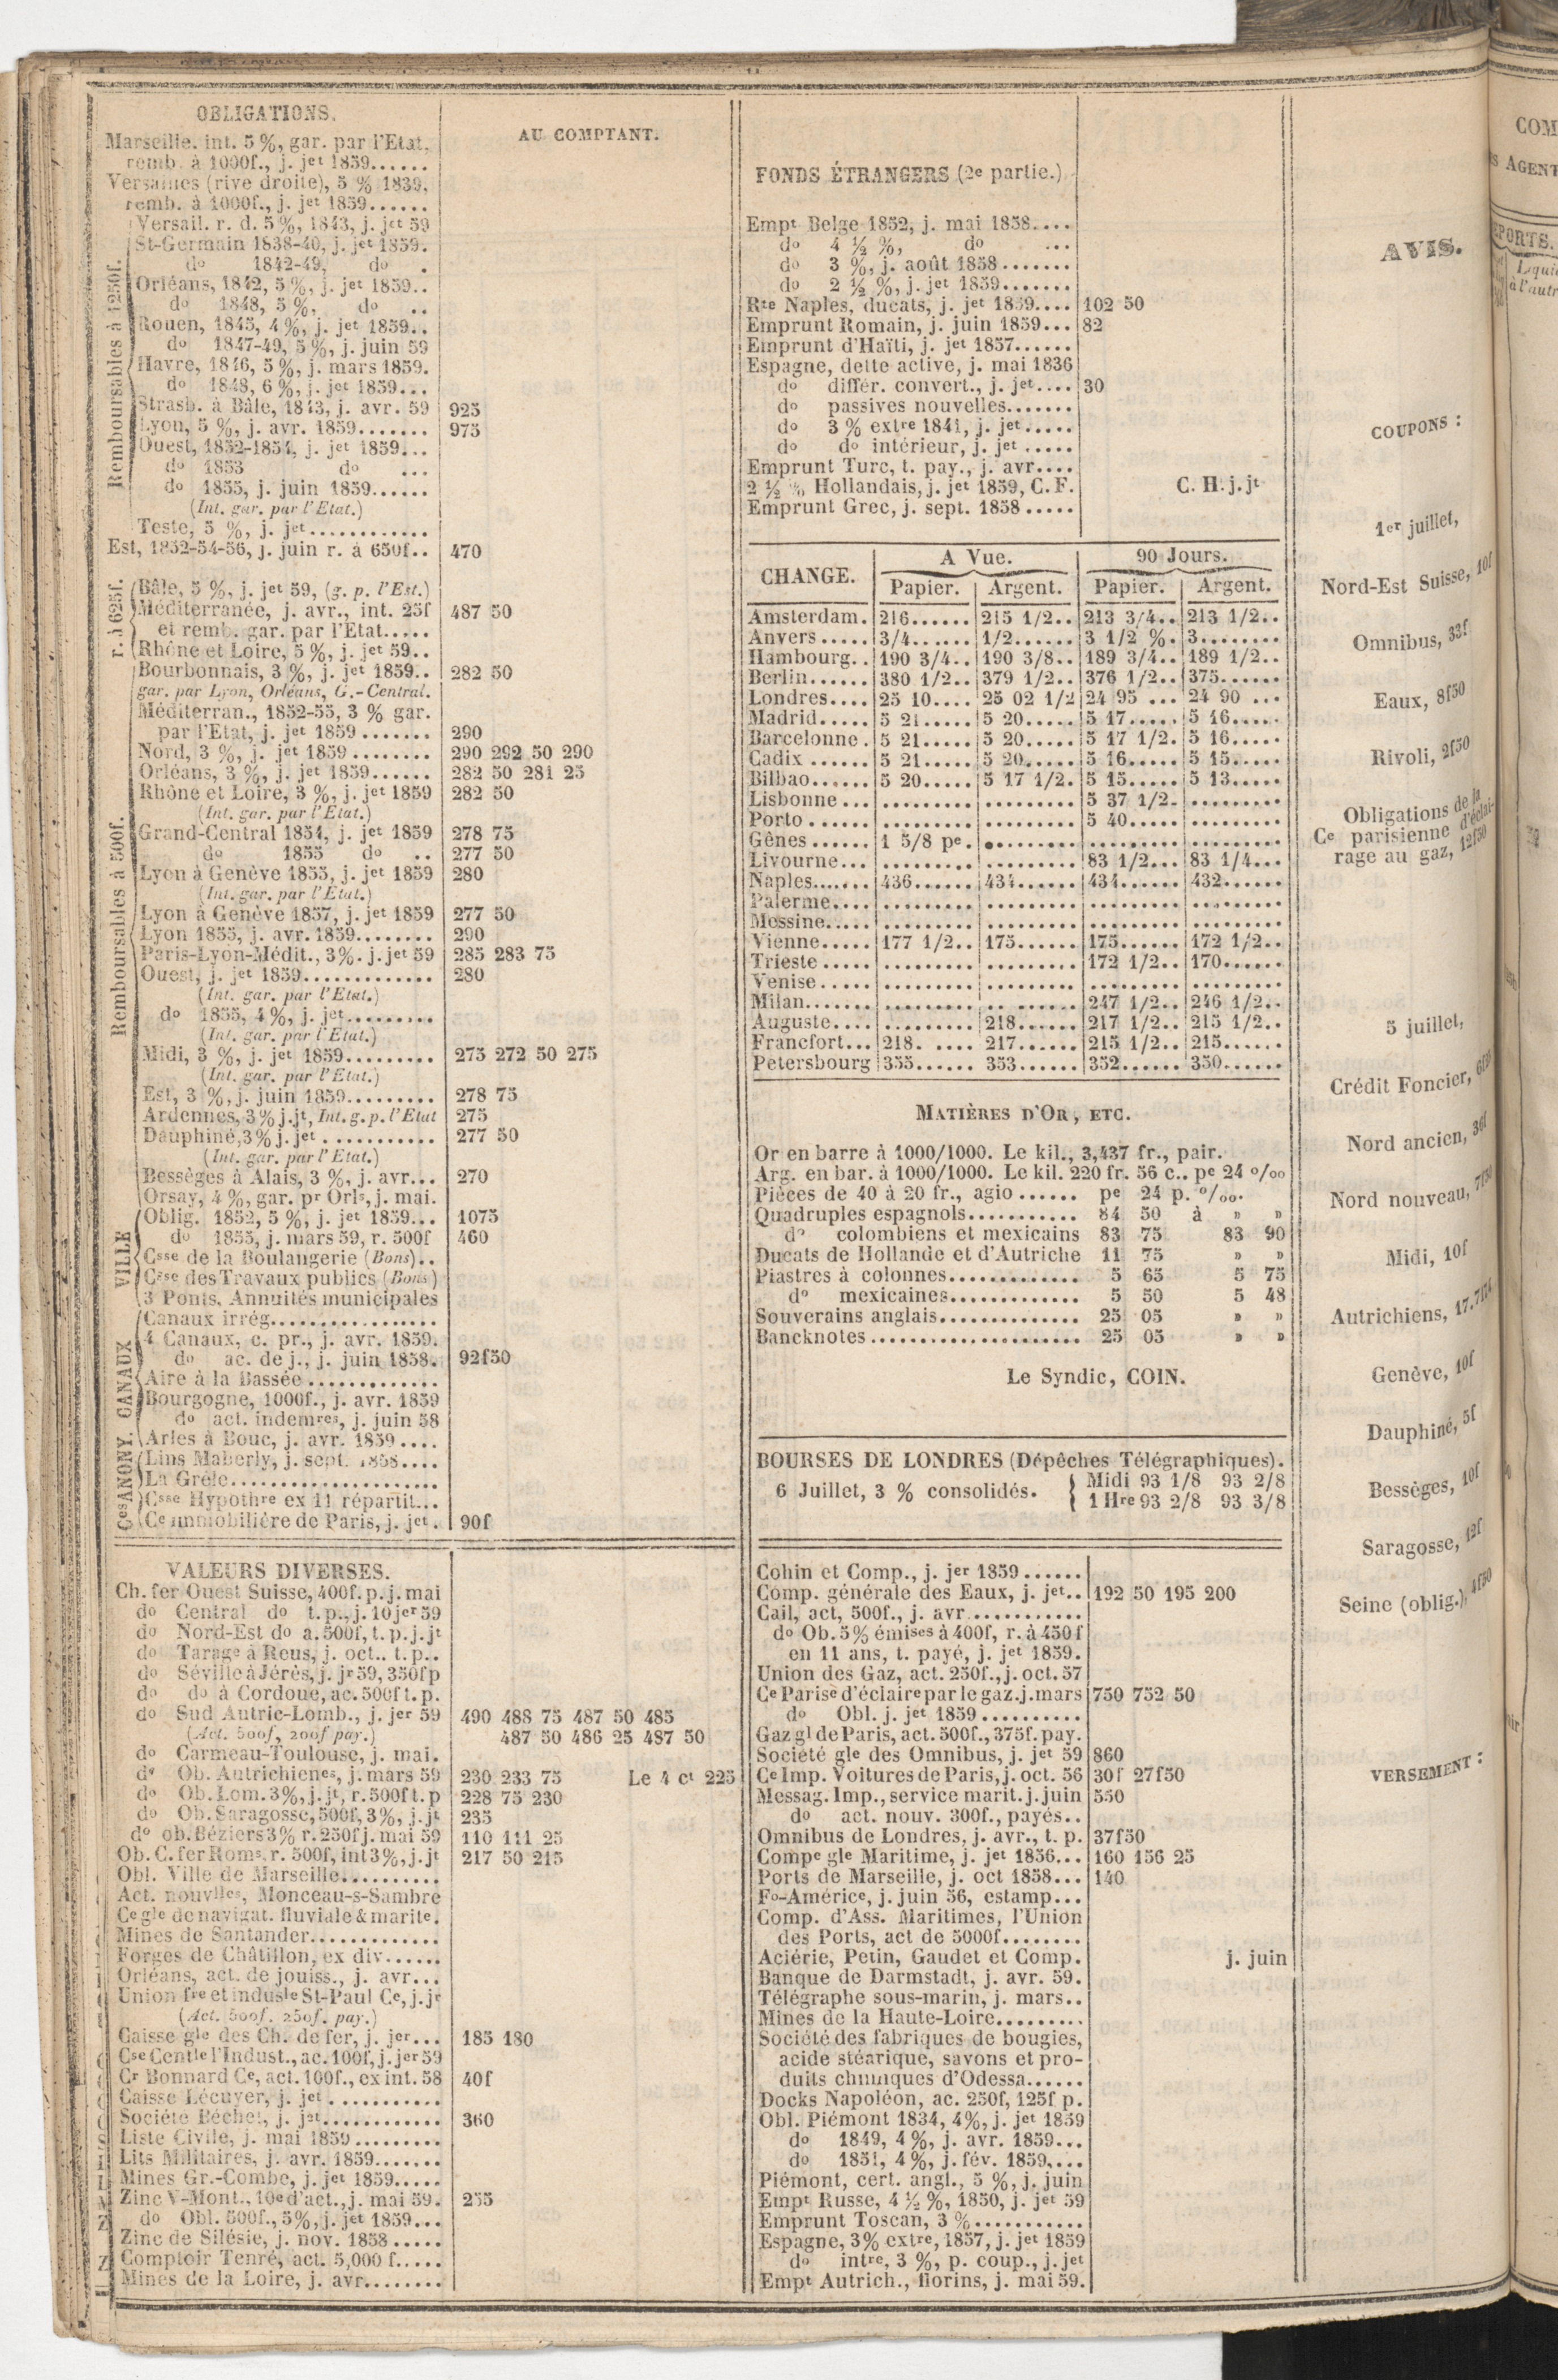 OBLIGATIONS.
AU COMPTANT.
Marseille. int. 5 %, gar. par l'Etat,
remb. à 1000f., j. jet 1859......
Versailles (rive droite), 5 % 1839,
remb. à 1000f., j. jet 1859......
Remboursables à 1250f.
Versail. r. d. 5 %, 1843, j. jet 59
St-Germain 1838-40, j. jet 1859.
do 1842-49, do .
Orléans, 1842, 5 %, j. jet 1859..
do 1848, 5 %, do ..
Rouen, 1845, 4 %, j. jet 1859..
do 1847-49, 5 %, j. juin 59
Havre, 1846, 5 %, j. mars 1859.
do 1848, 6 %, j. jet 1859...
Strasb. à Bâle, 1843, j. avr. 59 925
Lyon, 5 %, j. avr. 1859....... 975
Ouest, 1852-1854, j. jet 1859...
do 1853 do ...
do 1855, j. juin 1859......
(Int. gar. par l'Etat.)
Teste, 5 %, j. jet............
Est, 1852-54-56, j. juin r. à 650f.. 470
r. à 625f.
Bâle, 5 %, j. jet 59, (g. p. l'Est.)
Méditerranée, j. avr., int. 25f 487 50
et remb. gar. par l'Etat.....
Rhône et Loire, 5 %, j. jet 59..
Remboursables à 500f.
Bourbonnais, 3 %, j. jet 1859.. 282 50
gar. par Lyon, Orléans, G.-Central.
Méditerran., 1852-55, 3 % gar.
par l'Etat, j. jet 1859....... 290
Nord, 3 %, j. jet 1859........ 290 292 50 290
Orléans, 3 %, j. jet 1859...... 282 50 281 25
Rhône et Loire, 3 %, j. jet 1859 282 50
(Int. gar. par l'Etat.)
Grand-Central 1854, j. jet 1859 278 75
do 1855 do .. 277 50
Lyon à Genève 1855, j. jet 1859 280
(Int. gar. par l'Etat.)
Lyon à Genève 1857, j. jet 1859 277 50
Lyon 1855, j. avr. 1859........ 290
Paris-Lyon-Médit., 3%. j. jet 59 285 283 75
Ouest, j. jet 1859............. 280
(Int. gar. par l'Etat.)
do 1855, 4 %, j. jet.........
(Int. gar. par l'Etat.)
Midi, 3 %, j. jet 1859......... 275 272 50 275
(Int. gar. par l'Etat.)
Est, 3 %, j. juin 1859......... 278 75
Ardennes, 3% j. jt, Int. g. p. l'Etat 275
Dauphiné, 3% j. jet........... 277 50
(Int. gar. par l'Etat.)
Bessèges à Alais, 3 %, j. avr... 270
Orsay, 4 %, gar. pr Orls, j. mai.
VILLE
Oblig. 1852, 5 %, j. jet 1859... 1075
do 1855, j. mars 59, r. 500f 460
Csse de la Boulangerie (Bons)..
Csse des Travaux publics (Bons)
3 Ponts, Annuités municipales
CANAUX
Canaux irrég.................
4 Canaux, c. pr., j. avr. 1859.
do ac. de j., j. juin 1858. 92f50
Aire à la Bassée.............
Bourgogne, 1000f., j. avr. 1859
do act. indemres, j. juin 58
Arles à Bouc, j. avr. 1859....
Ces ANONY.
Lins Maberly, j. sept. 1858....
La Grêle.....................
Csse Hypothre ex 11 répartit...
Ce immobilière de Paris, j. jet. 90f
VALEURS DIVERSES.
Ch. fer Ouest Suisse, 400f. p. j. mai
do Central do t. p., j. 10 jer 59
do Nord-Est do a. 500f, t. p. j. jt
do Tarage à Reus, j. oct.. t. p..
do Séville à Jérès, j. jr 59, 350f p
do do à Cordoue, ac. 500f t. p.
do Sud Autric-Lomb., j. jer 59 490 488 75 487 50 485
(Act. 500f, 200f pay.) 487 50 486 25 487 50
do Carmeau-Toulouse, j. mai.
do Ob. Autrichienes, j. mars 59 230 233 75 Le 4 ct 225
do Ob. Lom. 3%, j. jt, r. 500f t. p 228 75 230
do Ob. Saragosse, 500f, 3%, j. jt 235
do ob. Béziers 3% r. 250f j. mai 59 110 111 25
Ob. C. fer Roms. r. 500f, int 3%, j. jt 217 50 215
Obl. Ville de Marseille..........
Act. nouvlles, Monceau-s-Sambre
Ce gle de navigat. fluviale & marite.
Mines de Santander.............
Forges de Châtillon, ex div......
Orléans, act. de jouiss., j. avr...
Union fre et indusle St-Paul Ce, j. jr
(Act. 500f. 250f. pay.)
Caisse gle des Ch. de fer, j. jer... 185 180
Cse Centle l'Indust., ac. 100f, j. jer 59
Cr Bonnard Ce, act. 100f., ex int. 58 40f
Caisse Lécuyer, j. jet...........
Société Béchet, j. jet............ 360
Liste Civile, j. mai 1859.........
Lits Militaires, j. avr. 1859.......
Mines Gr.-Combe, j. jet 1859.....
Zinc V-Mont., 10e d'act., j. mai 59. 255
do Obl. 500f., 5%, j. jet 1859...
Zinc de Silésie, j. nov. 1858.....
Comptoir Tenré, act. 5,000 f.....
Mines de la Loire, j. avr........
FONDS ÉTRANGERS (2e partie.)
Empt Belge 1852, j. mai 1858....
do 4 ½ %, do ...
do 3 %, j. août 1858.......
do 2 ½ %, j. jet 1859.......
Rte Naples, ducats, j. jet 1859.... 102 50
Emprunt Romain, j. juin 1859... 82
Emprunt d'Haïti, j. jet 1857......
Espagne, dette active, j. mai 1836
do différ. convert., j. jet.... 30
do passives nouvelles.......
do 3 % extre 1841, j. jet.....
do do intérieur, j. jet.....
Emprunt Turc, t. pay., j. avr....
2 ½ % Hollandais, j. jet 1859, C. F. C. H. j. jt
Emprunt Grec, j. sept. 1858.....
CHANGE. A Vue. 90 Jours.
Papier. Argent. Papier. Argent.
Amsterdam. 216...... 215 1/2.. 213 3/4.. 213 1/2..
Anvers..... 3/4...... 1/2...... 3 1/2 %. 3........
Hambourg.. 190 3/4.. 190 3/8.. 189 3/4.. 189 1/2..
Berlin...... 380 1/2.. 379 1/2.. 376 1/2.. 375......
Londres.... 25 10.... 25 02 1/2 24 95 ... 24 90 ...
Madrid..... 5 21..... 5 20..... 5 17..... 5 16.....
Barcelonne. 5 21..... 5 20..... 5 17 1/2. 5 16.....
Cadix...... 5 21..... 5 20..... 5 16..... 5 15.....
Bilbao...... 5 20..... 5 17 1/2. 5 15..... 5 13.....
Lisbonne... ......... ......... 5 37 1/2. .........
Porto...... ......... ......... 5 40..... .........
Gênes...... 1 5/8 pe. ......... ......... .........
Livourne... ......... ......... 83 1/2... 83 1/4...
Naples....... 436...... 434...... 434...... 432......
Palerme.... ......... ......... ......... .........
Messine..... ......... ......... ......... .........
Vienne..... 177 1/2.. 175...... 175...... 172 1/2..
Trieste..... ......... ......... 172 1/2.. 170......
Venise..... ......... ......... ......... .........
Milan....... ......... ......... 247 1/2.. 246 1/2..
Auguste.... ......... 218...... 217 1/2.. 215 1/2..
Francfort... 218. .... 217...... 215 1/2.. 215......
Petersbourg 355...... 353...... 352...... 350......
MATIÈRES D'OR, ETC.
Or en barre à 1000/1000. Le kil., 3,437 fr., pair.
Arg. en bar. à 1000/1000. Le kil. 220 fr. 56 c.. pe 24 o/oo
Pièces de 40 à 20 fr., agio...... pe 24 p. o/oo.
Quadruples espagnols........... 84 50 à » »
do colombiens et mexicains 83 75 83 90
Ducats de Hollande et d'Autriche 11 75 » »
Piastres à colonnes............. 5 65 5 75
do mexicaines............. 5 50 5 48
Souverains anglais.............. 25 05 » »
Bancknotes..................... 25 05 » »
Le Syndic, COIN.
BOURSES DE LONDRES (Dépêches Télégraphiques).
6 Juillet, 3 % consolidés. Midi 93 1/8 93 2/8
1 Hre 93 2/8 93 3/8
Cohin et Comp., j. jer 1859......
Comp. générale des Eaux, j. jet.. 192 50 195 200
Cail, act, 500f., j. avr...........
do Ob. 5% émises à 400f, r. à 450f
en 11 ans, t. payé, j. jet 1859.
Union des Gaz, act. 250f., j. oct. 57
Ce Parise d'éclaire par le gaz. j. mars 750 752 50
do Obl. j. jet 1859..........
Gaz gl de Paris, act. 500f., 375f. pay.
Société gle des Omnibus, j. jet 59 860
Ce Imp. Voitures de Paris, j. oct. 56 30f 27f50
Messag. Imp., service marit. j. juin 550
do act. nouv. 300f., payés..
Omnibus de Londres, j. avr., t. p. 37f50
Compe gle Maritime, j. jet 1856... 160 156 25
Ports de Marseille, j. oct 1858... 140
Fo-Américe, j. juin 56, estamp...
Comp. d'Ass. Maritimes, l'Union
des Ports, act de 5000f........
Aciérie, Petin, Gaudet et Comp. j. juin
Banque de Darmstadt, j. avr. 59.
Télégraphe sous-marin, j. mars..
Mines de la Haute-Loire.........
Société des fabriques de bougies,
acide stéarique, savons et pro-
duits chimiques d'Odessa......
Docks Napoléon, ac. 250f, 125f p.
Obl. Piémont 1834, 4%, j. jet 1859
do 1849, 4 %, j. avr. 1859...
do 1851, 4 %, j. fév. 1859,...
Piémont, cert. angl., 5 %, j. juin
Empt Russe, 4 ½ %, 1850, j. jet 59
Emprunt Toscan, 3 %...........
Espagne, 3% extre, 1857, j. jet 1859
do intre, 3 %, p. coup., j. jet
Empt Autrich., florins, j. mai 59.
AVIS.
COUPONS :
1er juillet,
Nord-Est Suisse, 10f
Omnibus, 33f
Eaux, 8f50
Rivoli, 2f50
Obligations de la
Ce parisienne d'éclai-
rage au gaz, 12f50
5 juillet,
Crédit Foncier,
Nord ancien, 36f
Nord nouveau, 7f50
Midi, 10f
Autrichiens,
Genève, 10f
Dauphiné, 5f
Bessèges, 10f
Saragosse, 12f
Seine (oblig.), 4f50
VERSEMENT :
COM
AGENT
PORTS.
Liqui
à l'autr